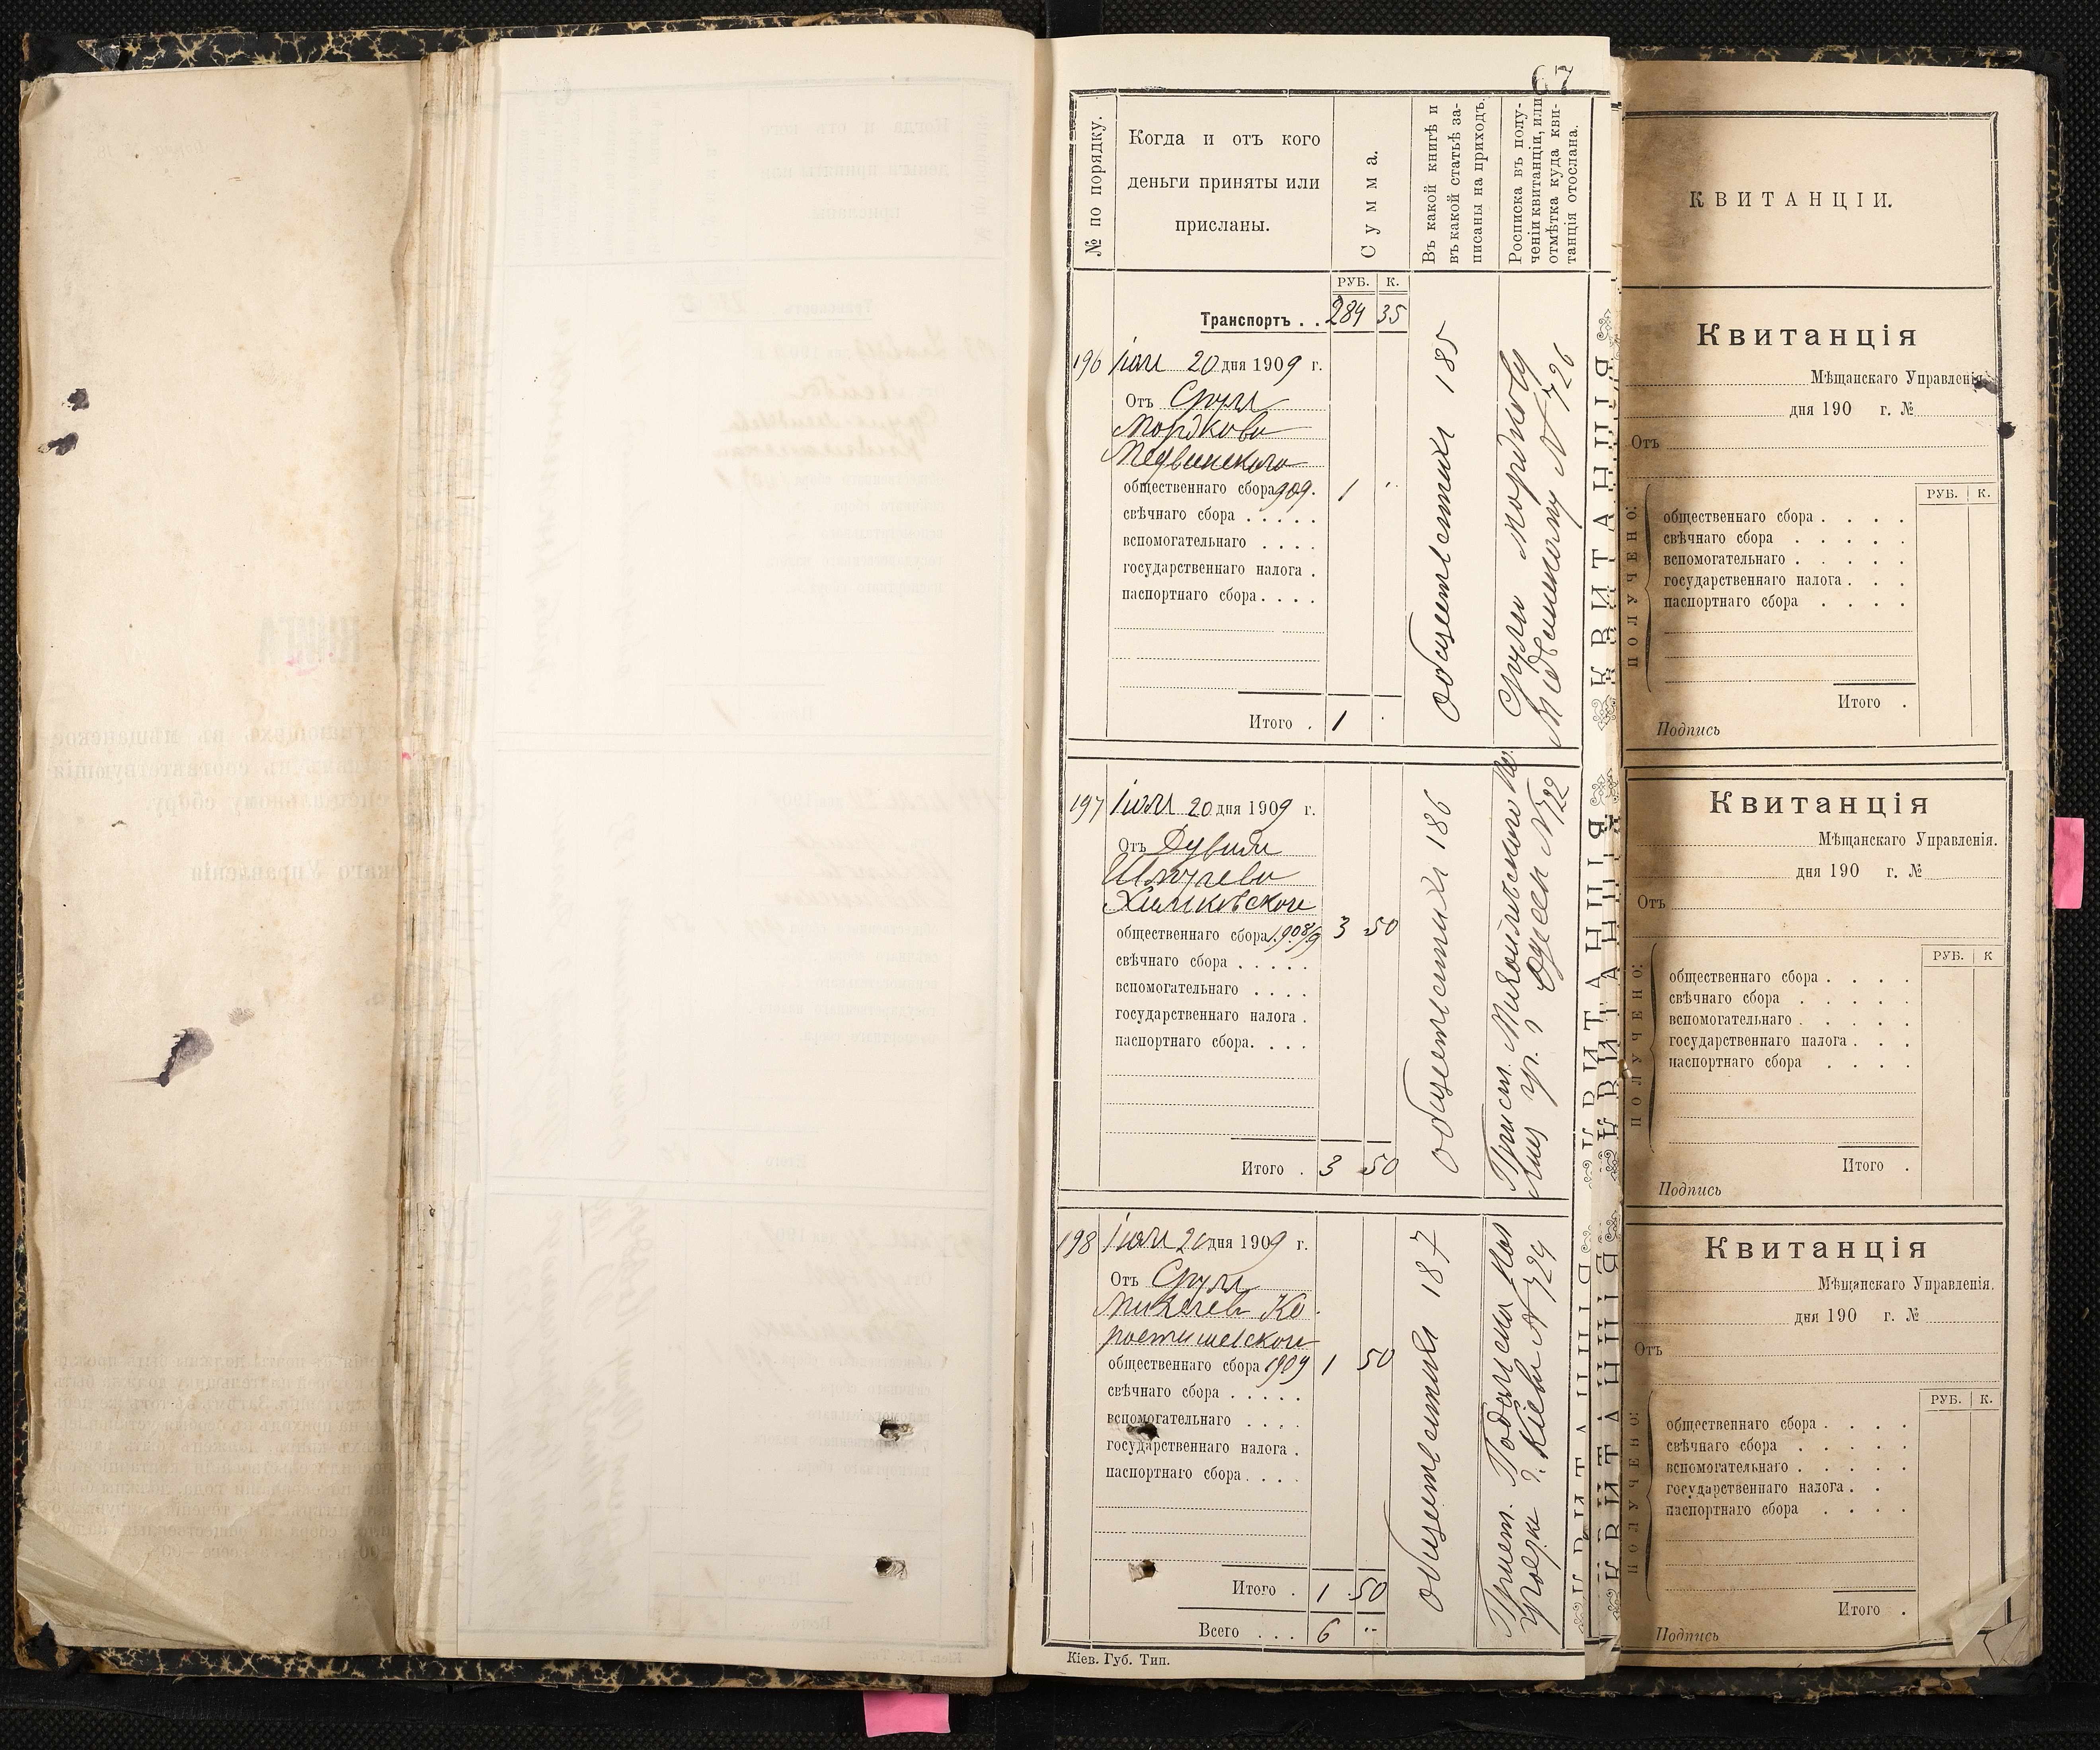 67
№ по порядку.
Когда и отъ кого
деньги приняты или
присланы.
Сумма.
Въ какой книгѣ и
въ какой статьѣ за-
писаны на приходъ.
Росписка въ полу-
ченіи квитанціи, или
отмѣтка куда кви-
танція отослана.
РУБ. К.
Транспортъ . . 284 35
196 іюля 20 дня 1909 г.
Отъ Сруля
Мордкова
Медвинскаго
общественнаго сбора 909. 1 "
свѣчнаго сбора . . . . .
вспомогательнаго . . . .
государственнаго налога .
паспортнаго сбора . . . .
Итого . 1 "
Общественныхъ 185
Срулю Мордкову
№ 726
197 іюля 20 дня 1909 г.
Отъ Дувида
Шмулева
общественнаго сбора 1908/9 3 50
свѣчнаго сбора . . . . .
вспомогательнаго . . . .
государственнаго налога .
паспортнаго сбора . . . .
Итого . 3 50
общественныхъ 186
Прист.
№ 722
198 іюля 20 дня 1909 г.
Отъ Сруля
Михелева Ко-
ростишевскаго
общественнаго сбора 1909 1 50
свѣчнаго сбора . . . . .
вспомогательнаго . . . .
государственнаго налога .
паспортнаго сбора . . . .
Итого . 1 50
Всего . . . 6 "
общественныхъ 187
Прист. Подольска
г. Кіева № 724
Кіев. Губ. Тип.
КВИТАНЦІИ.
Квитанція
Мѣщанскаго Управленія.
дня 190 г. №
Отъ
ПОЛУЧЕНО:
РУБ. К.
общественнаго сбора . . . .
свѣчнаго сбора . . . . .
вспомогательнаго . . . . .
государственнаго налога . . .
паспортнаго сбора . . . .
Итого .
Подпись
Квитанція
Мѣщанскаго Управленія.
дня 190 г. №
Отъ
ПОЛУЧЕНО:
РУБ. К
общественнаго сбора . . . .
свѣчнаго сбора . . . . .
вспомогательнаго . . . . .
государственнаго налога . . .
паспортнаго сбора . . . .
Итого .
Подпись
Квитанція
Мѣщанскаго Управленія.
дня 190 г. №
Отъ
ПОЛУЧЕНО:
РУБ. К.
общественнаго сбора . . . .
свѣчнаго сбора . . . . .
вспомогательнаго . . . . .
государственнаго налога . .
паспортнаго сбора . . . .
Итого .
Подпись